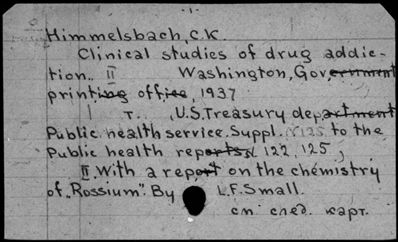 Himmelsbach, C.K.
Clinical studies of drug addic-
tion.. II Washington, Government
printing office, 1937
I т... U.S. Treasury department
Public health service. Suppl. N 125 to the
Public health reports, 122, 125.,
II. With a report on the chemistry
of „Rossium". By L.F. Small.
см след. карт.